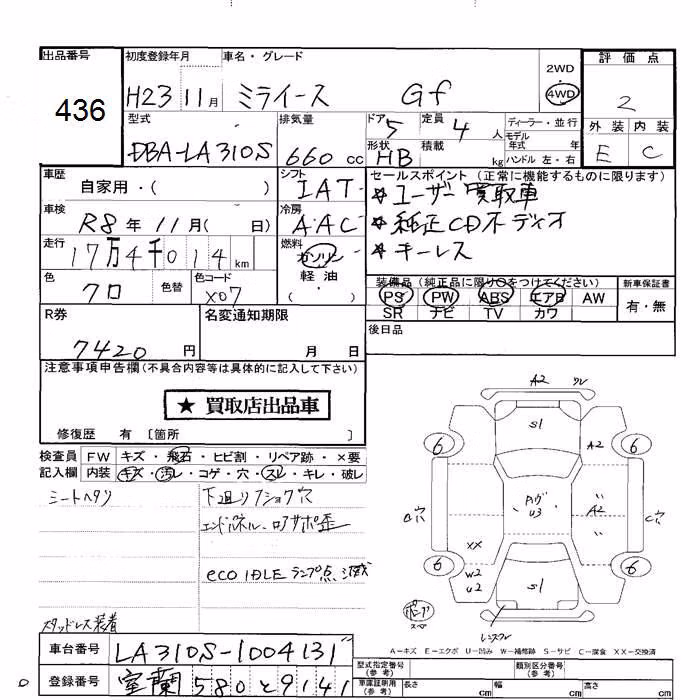 出品番号
436
初度登録年月
H23 11月
車名・グレード
ミライース Gf
2WD
4WD
評価点
2
外装 内装
E C
型式
DBA-LA310S
排気量
660 cc
ドア 5
定員 4 人
形状 HB
積載 kg
ディーラー・並行
モデル年式 年
ハンドル 左・右
車歴
自家用・( )
シフト
IAT
セールスポイント (正常に機能するものに限ります)
★ユーザー買取車
★純正CDオーディオ
★キーレス
車検
R8年 11月( 日)
冷房
AAC
走行
17万4千014km
燃料
ガソリン
軽油
( )
色
クロ
色替
色コード
X07
装備品 (純正品に限り○をつけてください)
PS PW ABS エアB AW
SR ナビ TV カワ
新車保証書
有・無
R券
7420円
名変通知期限
月 日
後日品
注意事項申告欄(不具合内容等は具体的に記入して下さい)
★ 買取店出品車
修復歴 有 〔箇所 〕
検査員記入欄
FW キズ・飛石・ヒビ割・リペア跡・×要
内装 キズ・汚レ・コゲ・穴・スレ・キレ・破レ
シートヘタリ
下廻リフショク穴
エンドパネル、ロアサポ歪
eco IDLE ランプ点滅
スタッドレス装着
A2
S1
6
6
A2
A2
C穴
XX
W2
U2
S1
6
6
A=キズ E=エクボ U=凹み W=補修跡 S=サビ C=腐食 XX=交換済
車台番号
LA310S-1004131
登録番号
室蘭 580 と 9141
型式指定番号(参考)
類別区分番号(参考)
車庫証明用(参考)
長さ cm
幅 cm
高さ cm